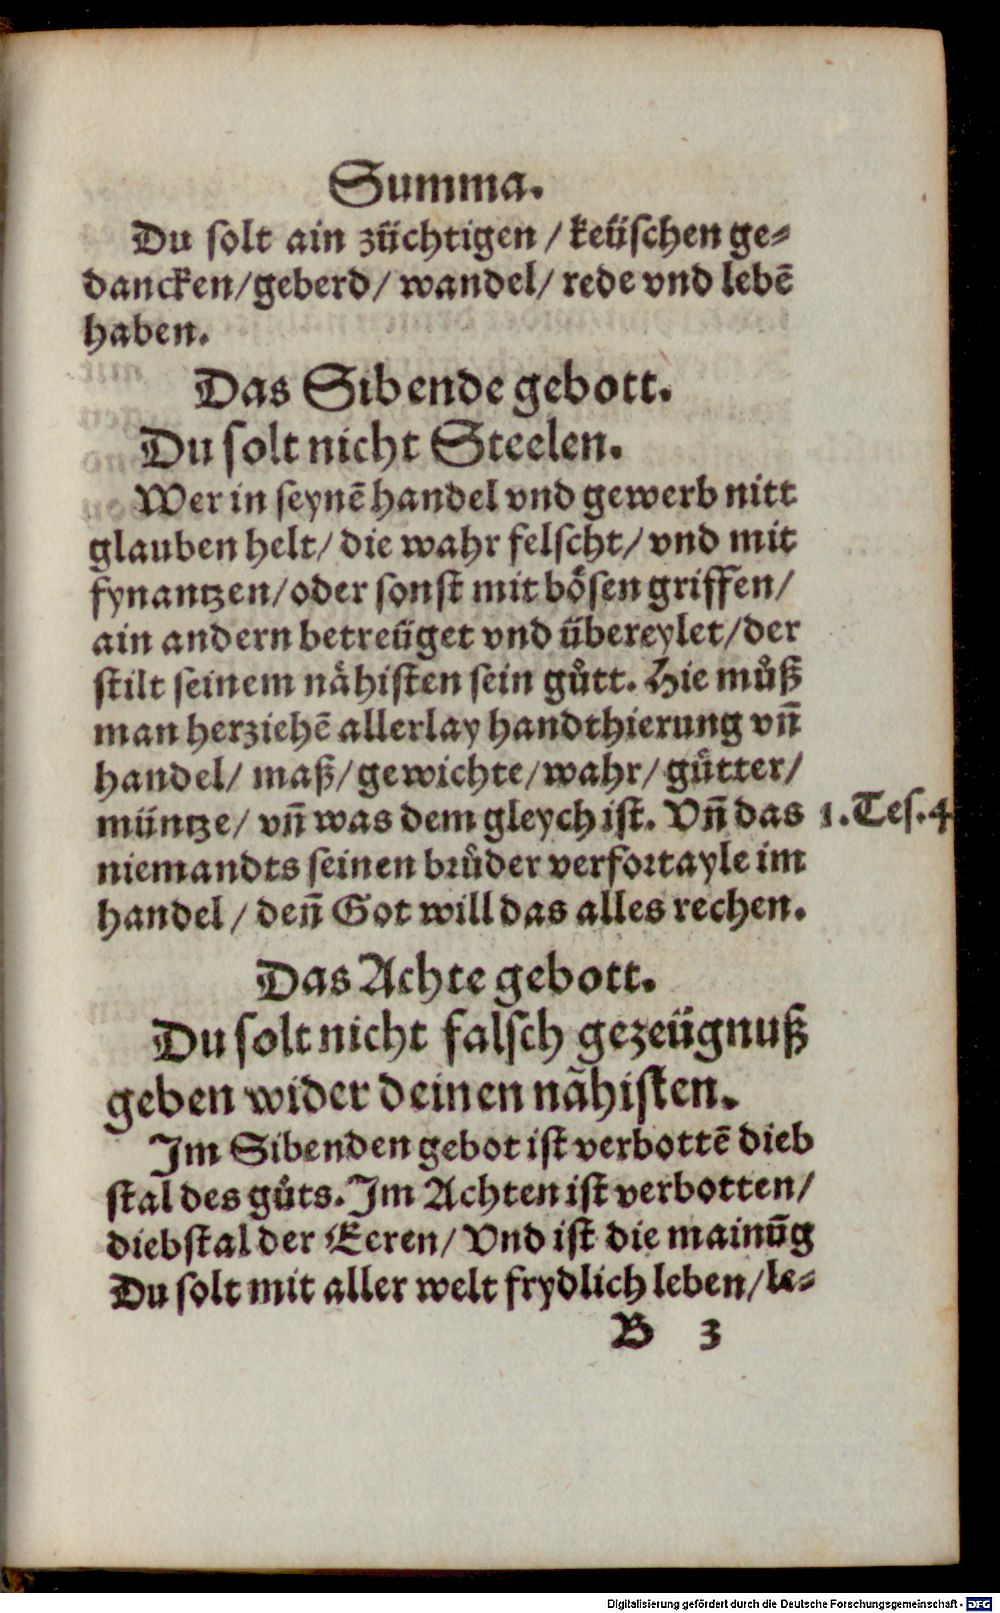 Summa.
Du solt ain züchtigen / keüschen ge⸗
dancken/geberd/ wandel/ rede vnd lebē
haben.
Das Sibende gebott.
Du solt nicht Steelen.
Wer in seynē handel vnd gewerb nitt
glauben helt/ die wahr felscht/ vnd mit
fynantzen/oder sonst mit bösen griffen/
ain andern betreüget vnd übereylet/der
stilt seinem nähisten sein gůtt. Hie můß
man herziehē allerlay handthierung vn̄
handel/ maß/gewichte/wahr/gütter/
müntze/ vn̄ was dem gleych ist. Vn̄ das 1.Tes.4
niemandts seinen brůder verfortayle im
handel/ den̄ Got will das alles rechen.
Das Achte gebott.
Du solt nicht falsch gezeügnuß
geben wider deinen nähisten.
Im Sibenden gebot ist verbottē dieb
stal des gůts. Im Achten ist verbotten/
diebstal der Eeren/ Vnd ist die mainūg
Du solt mit aller welt frydlich leben/le⸗
B 3
Digitalisierung gefördert durch die Deutsche Forschungsgemeinschaft - DFG